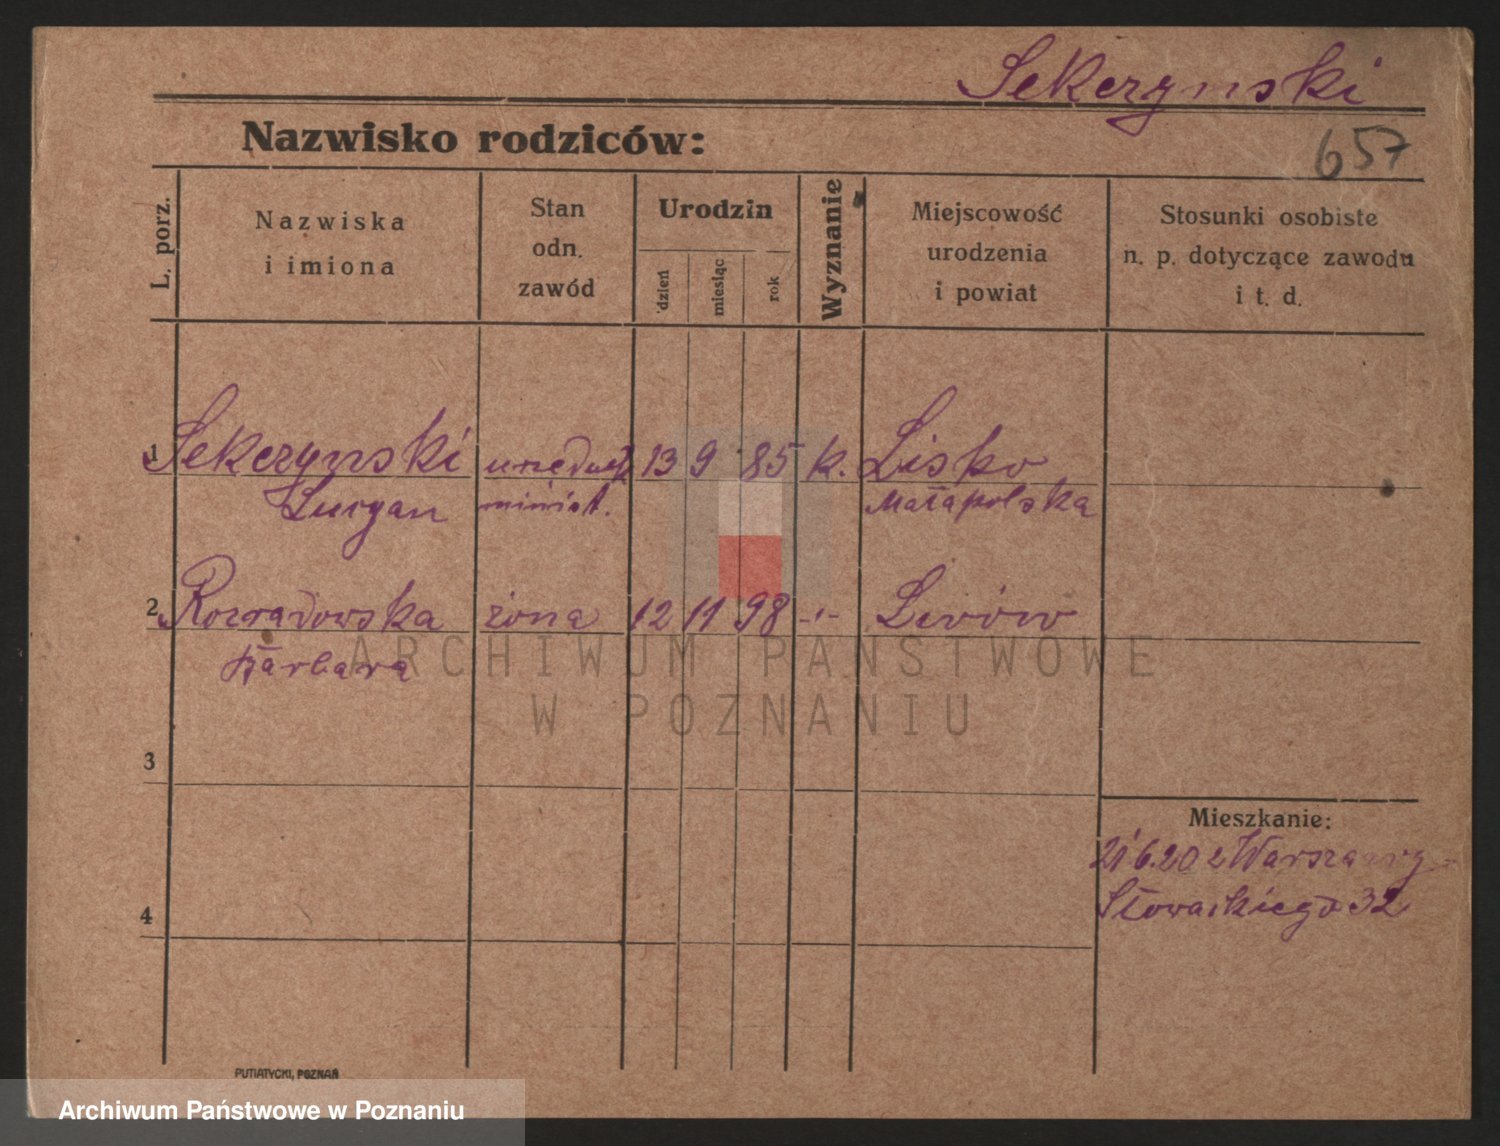 Sekczynski
Nazwisko rodziców:
657
L. porz.
Nazwiska
i imiona
Stan
odn.
zawód
Urodzin
dzień
miesiąc
rok
Wyznanie
Miejscowość
urodzenia
i powiat
Stosunki osobiste
n. p. dotyczące zawodu
i t. d.
1 Sekczynski 13 9 85 k. Lisko
minist. Małapolska
2 Rozwadowska żona 12 11 98 -"- Lwów
Barbara
ARCHIWUM PAŃSTWOWE
W POZNANIU
3
Mieszkanie:
21/6.20 z Warszawy
4
Słowackiego 32
PUTIATYCKI, POZNAŃ
Archiwum Państwowe w Poznaniu